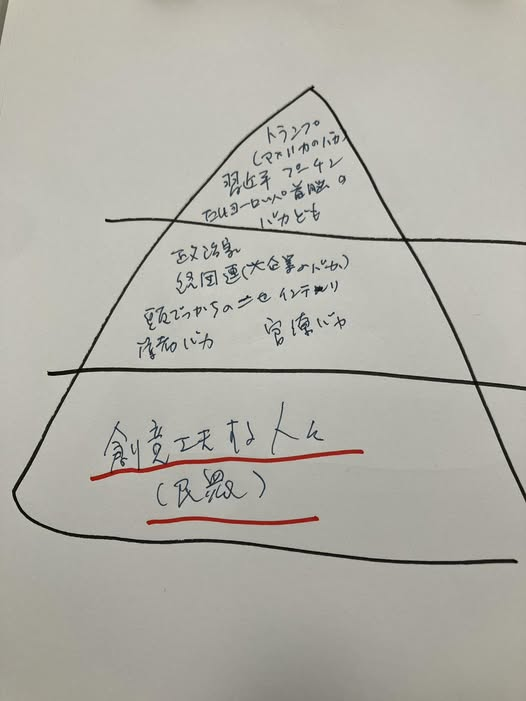 トランプ
(マガバカのバカ)
習近平 プーチン
西ヨーロッパ首脳の
バカども
政治家
経団連(大企業のバカ)
頭でっかちの インテリ
官僚バカ
創意工夫する人々
(民衆)